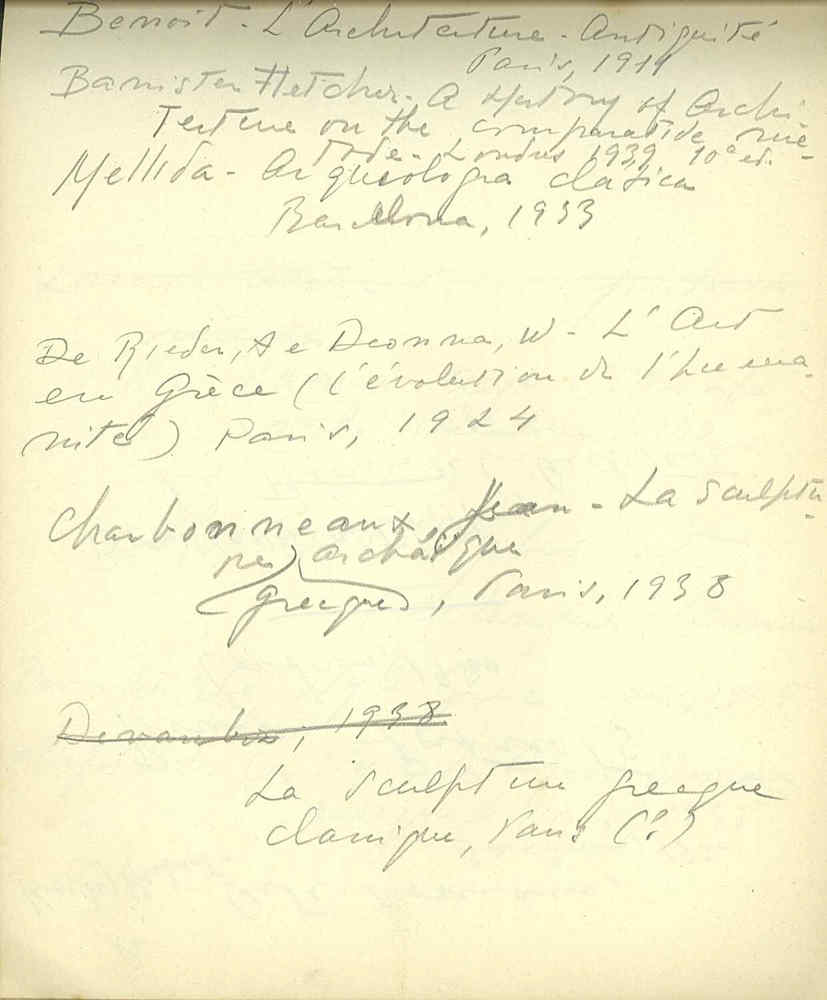 Benoit - L'Architecture - Antiquité
Paris, 1911
Banister Fletcher - A History of Archi-
tecture on the comparative me-
tode - Londres 1939 10ª ed.
Mellida - Arqueologia clásica
Barcelona, 1933
De Ridder, A e Deonna, W - L'Art
en Grèce (L'évolution de l'huma-
nité) Paris, 1924
Charbonneaux, Jean - La sculptu-
re archaïque
grecque, Paris, 1938
1938
La sculpture grecque
classique, Paris (?)